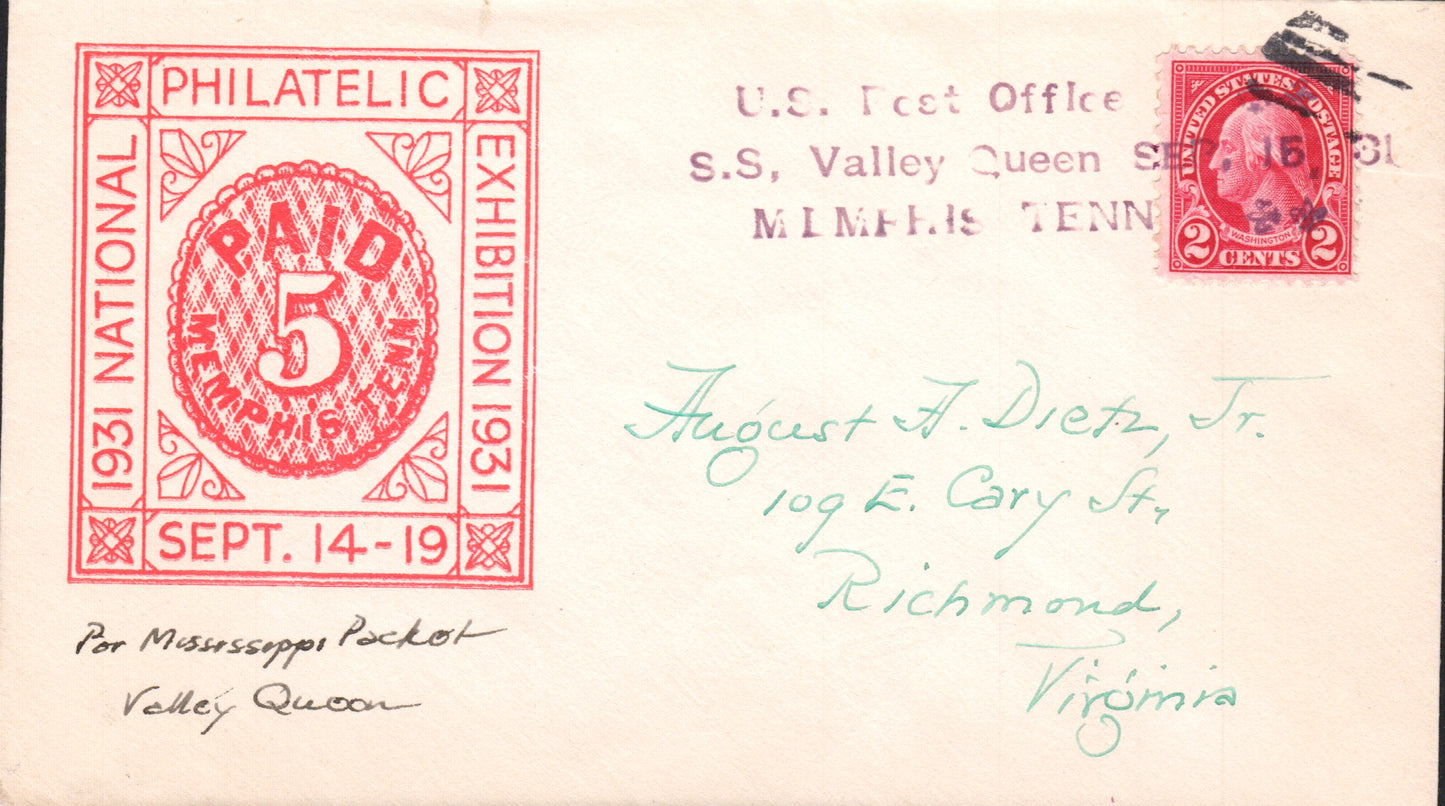 PHILATELIC
1931 NATIONAL
EXHIBITION 1931
PAID
5
MEMPHIS, TENN
SEPT. 14-19
Per Mississippi Packet
Valley Queen
U.S. Post Office
S.S, Valley Queen SEP. 15, 31
MEMPHIS TENN
UNITED STATES POSTAGE
WASHINGTON
2 CENTS 2
August A. Dietz, Jr.
109 E. Cary St,
Richmond,
Virginia